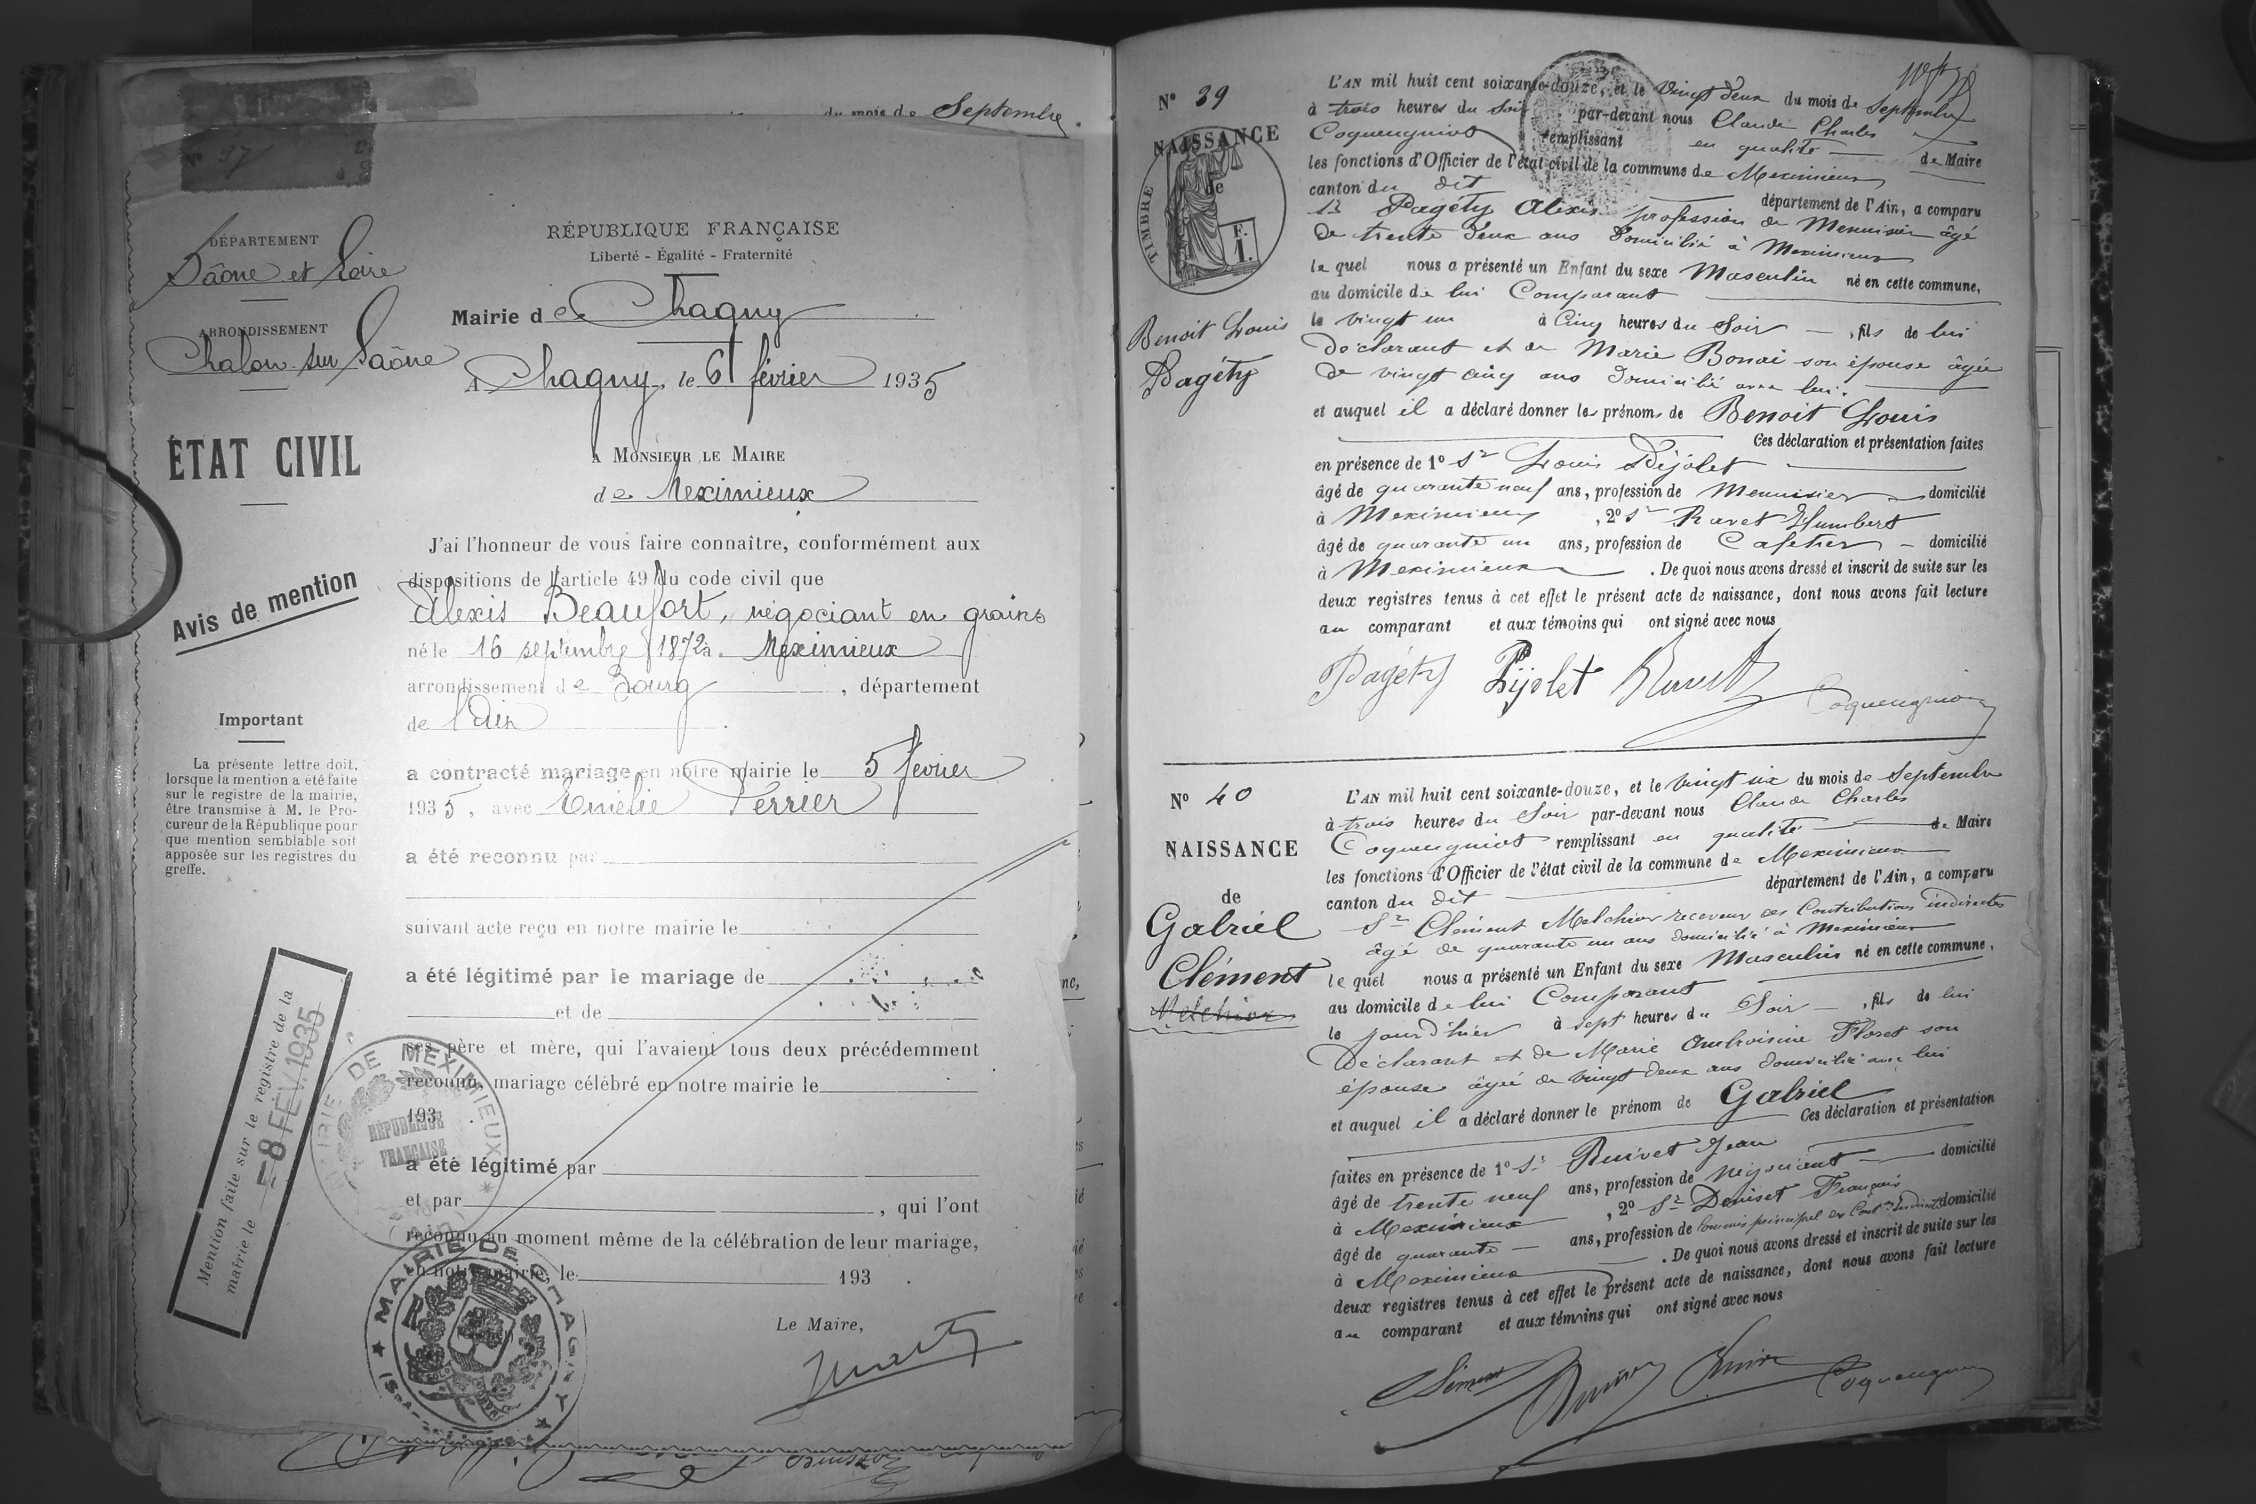 du mois de Septembre
N° 37
DÉPARTEMENT
Saône et Loire
ARRONDISSEMENT
Chalon sur Saône
ÉTAT CIVIL
Avis de mention
Important
La présente lettre doit,
lorsque la mention a été faite
sur le registre de la mairie,
être transmise à M. le Pro-
cureur de la République pour
que mention semblable soit
apposée sur les registres du
greffe.
Mention faite sur le registre de la
mairie le -8 FEV. 1935
RÉPUBLIQUE FRANÇAISE
Liberté - Égalité - Fraternité
Mairie de Chagny
A Chagny, le 6 février 1935
A MONSIEUR LE MAIRE
de Meximieux
J'ai l'honneur de vous faire connaître, conformément aux
dispositions de l'article 49 du code civil que
Alexis Beaufort, négociant en grains
né le 16 septembre 1872 à Meximieux
arrondissement de Bourg, département
de l'Ain
a contracté mariage en notre mairie le 5 février
1935, avec Emélie Perrier
a été reconnu par
suivant acte reçu en notre mairie le
a été légitimé par le mariage de
et de
ses père et mère, qui l'avaient tous deux précédemment
reconnu, mariage célébré en notre mairie le
193
a été légitimé par
et par , qui l'ont
reconnu au moment même de la célébration de leur mariage,
en notre mairie, le 193 .
Le Maire,
MAIRIE DE MEXIMIEUX
RÉPUBLIQUE
FRANÇAISE
AIN
MAIRIE DE CHAGNY
N° 39
NAISSANCE
de
TIMBRE
F.
1.
Benoit Louis
Pagéty
L'AN mil huit cent soixante-douze, et le vingt deux du mois de Septembre
à trois heures du Soir par-devant nous Claude Charles
Coquengniot remplissant en qualité de Maire
les fonctions d'Officier de l'état civil de la commune de Meximieux
canton du dit département de l'Ain, a comparu
Sr Pagéty Alexis profession de Menuisier âgé
de trente deux ans domicilié à Meximieux
lequel nous a présenté un Enfant du sexe Masculin né en cette commune,
au domicile de lui Comparant
le vingt un à Cinq heures du Soir , fils de lui
déclarant et de Marie Bonai son épouse âgée
de vingt cinq ans domicilié avec lui.
et auquel il a déclaré donner les prénoms de Benoit Louis
Ces déclaration et présentation faites
en présence de 1° Sr Louis Péjolet
âgé de quarante neuf ans, profession de Menuisier domicilié
à Meximieux , 2° Sr Ravet Humbert
âgé de quarante un ans, profession de Cafetier domicilié
à Meximieux . De quoi nous avons dressé et inscrit de suite sur les
deux registres tenus à cet effet le présent acte de naissance, dont nous avons fait lecture
au comparant et aux témoins qui ont signé avec nous
Pagéty Pijolet Ravet
Coquengniot
N° 40
NAISSANCE
de
Gabriel
Clément
Melchior
L'AN mil huit cent soixante-douze, et le vingt six du mois de Septembre
à trois heures du Soir par-devant nous Claude Charles
Coquengniot remplissant en qualité de Maire
les fonctions d'Officier de l'état civil de la commune de Meximieux
canton du dit département de l'Ain, a comparu
Sr Clément Melchior receveur des Contributions indirectes
âgé de quarante un ans domicilié à Meximieux
lequel nous a présenté un Enfant du sexe Masculin né en cette commune,
au domicile de lui Comparant
le jour d'hier à sept heures du Soir , fils de lui
Déclarant et de Marie Ambroisine Floret son
épouse âgée de vingt deux ans domicilié avec lui
et auquel il a déclaré donner le prénom de Gabriel
Ces déclaration et présentation
faites en présence de 1° Sr Ruivet Jean
âgé de trente neuf ans, profession de Négociant domicilié
à Meximieux , 2° Sr Deniset François
âgé de quarante ans, profession de Commis principal des Cont. Indirectes domicilié
à Meximieux . De quoi nous avons dressé et inscrit de suite sur les
deux registres tenus à cet effet le présent acte de naissance, dont nous avons fait lecture
au comparant et aux témoins qui ont signé avec nous
Coquengniot